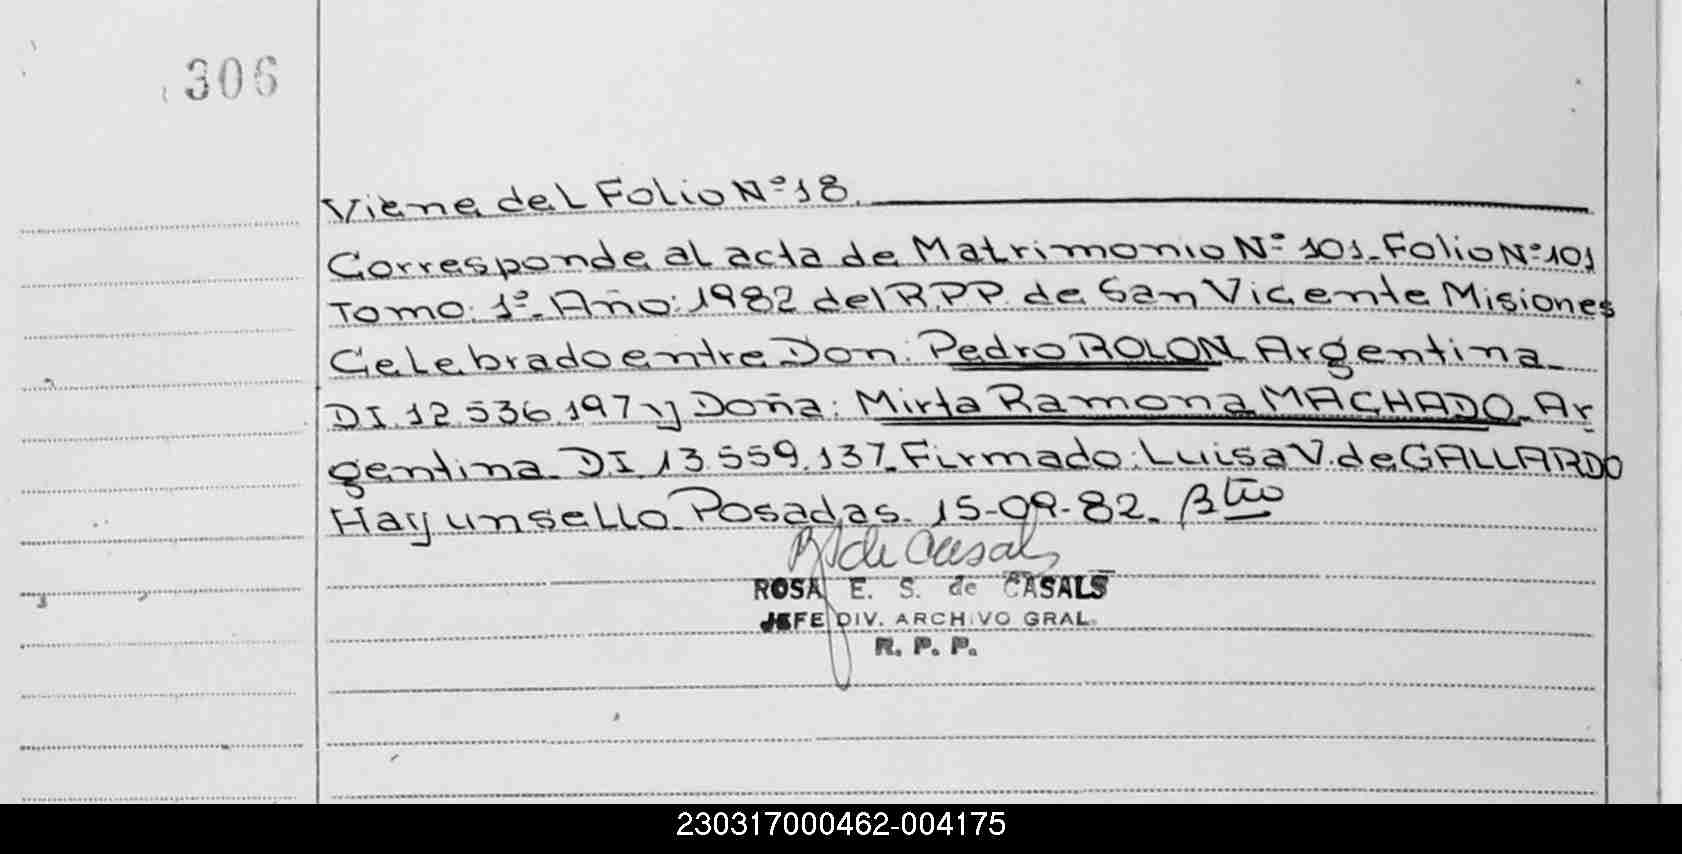 306
Viene del Folio Nº 18.
Corresponde al acta de Matrimonio Nº 101_Folio Nº 101
Tomo: 1º_Año: 1982 del R.P.P. de San Vicente Misiones
Celebrado entre Don: Pedro ROLON Argentina_
DI.12.536.197 y Doña: Mirta Ramona MACHADO_Ar
gentina_DI.13.559.137_Firmado: Luisa V. de GALLARDO
Hay un sello_Posadas_15-09-82_
de Casals
ROSA E. S. de CASALS
JEFE DIV. ARCHIVO GRAL.
R. P. P.
230317000462-004175